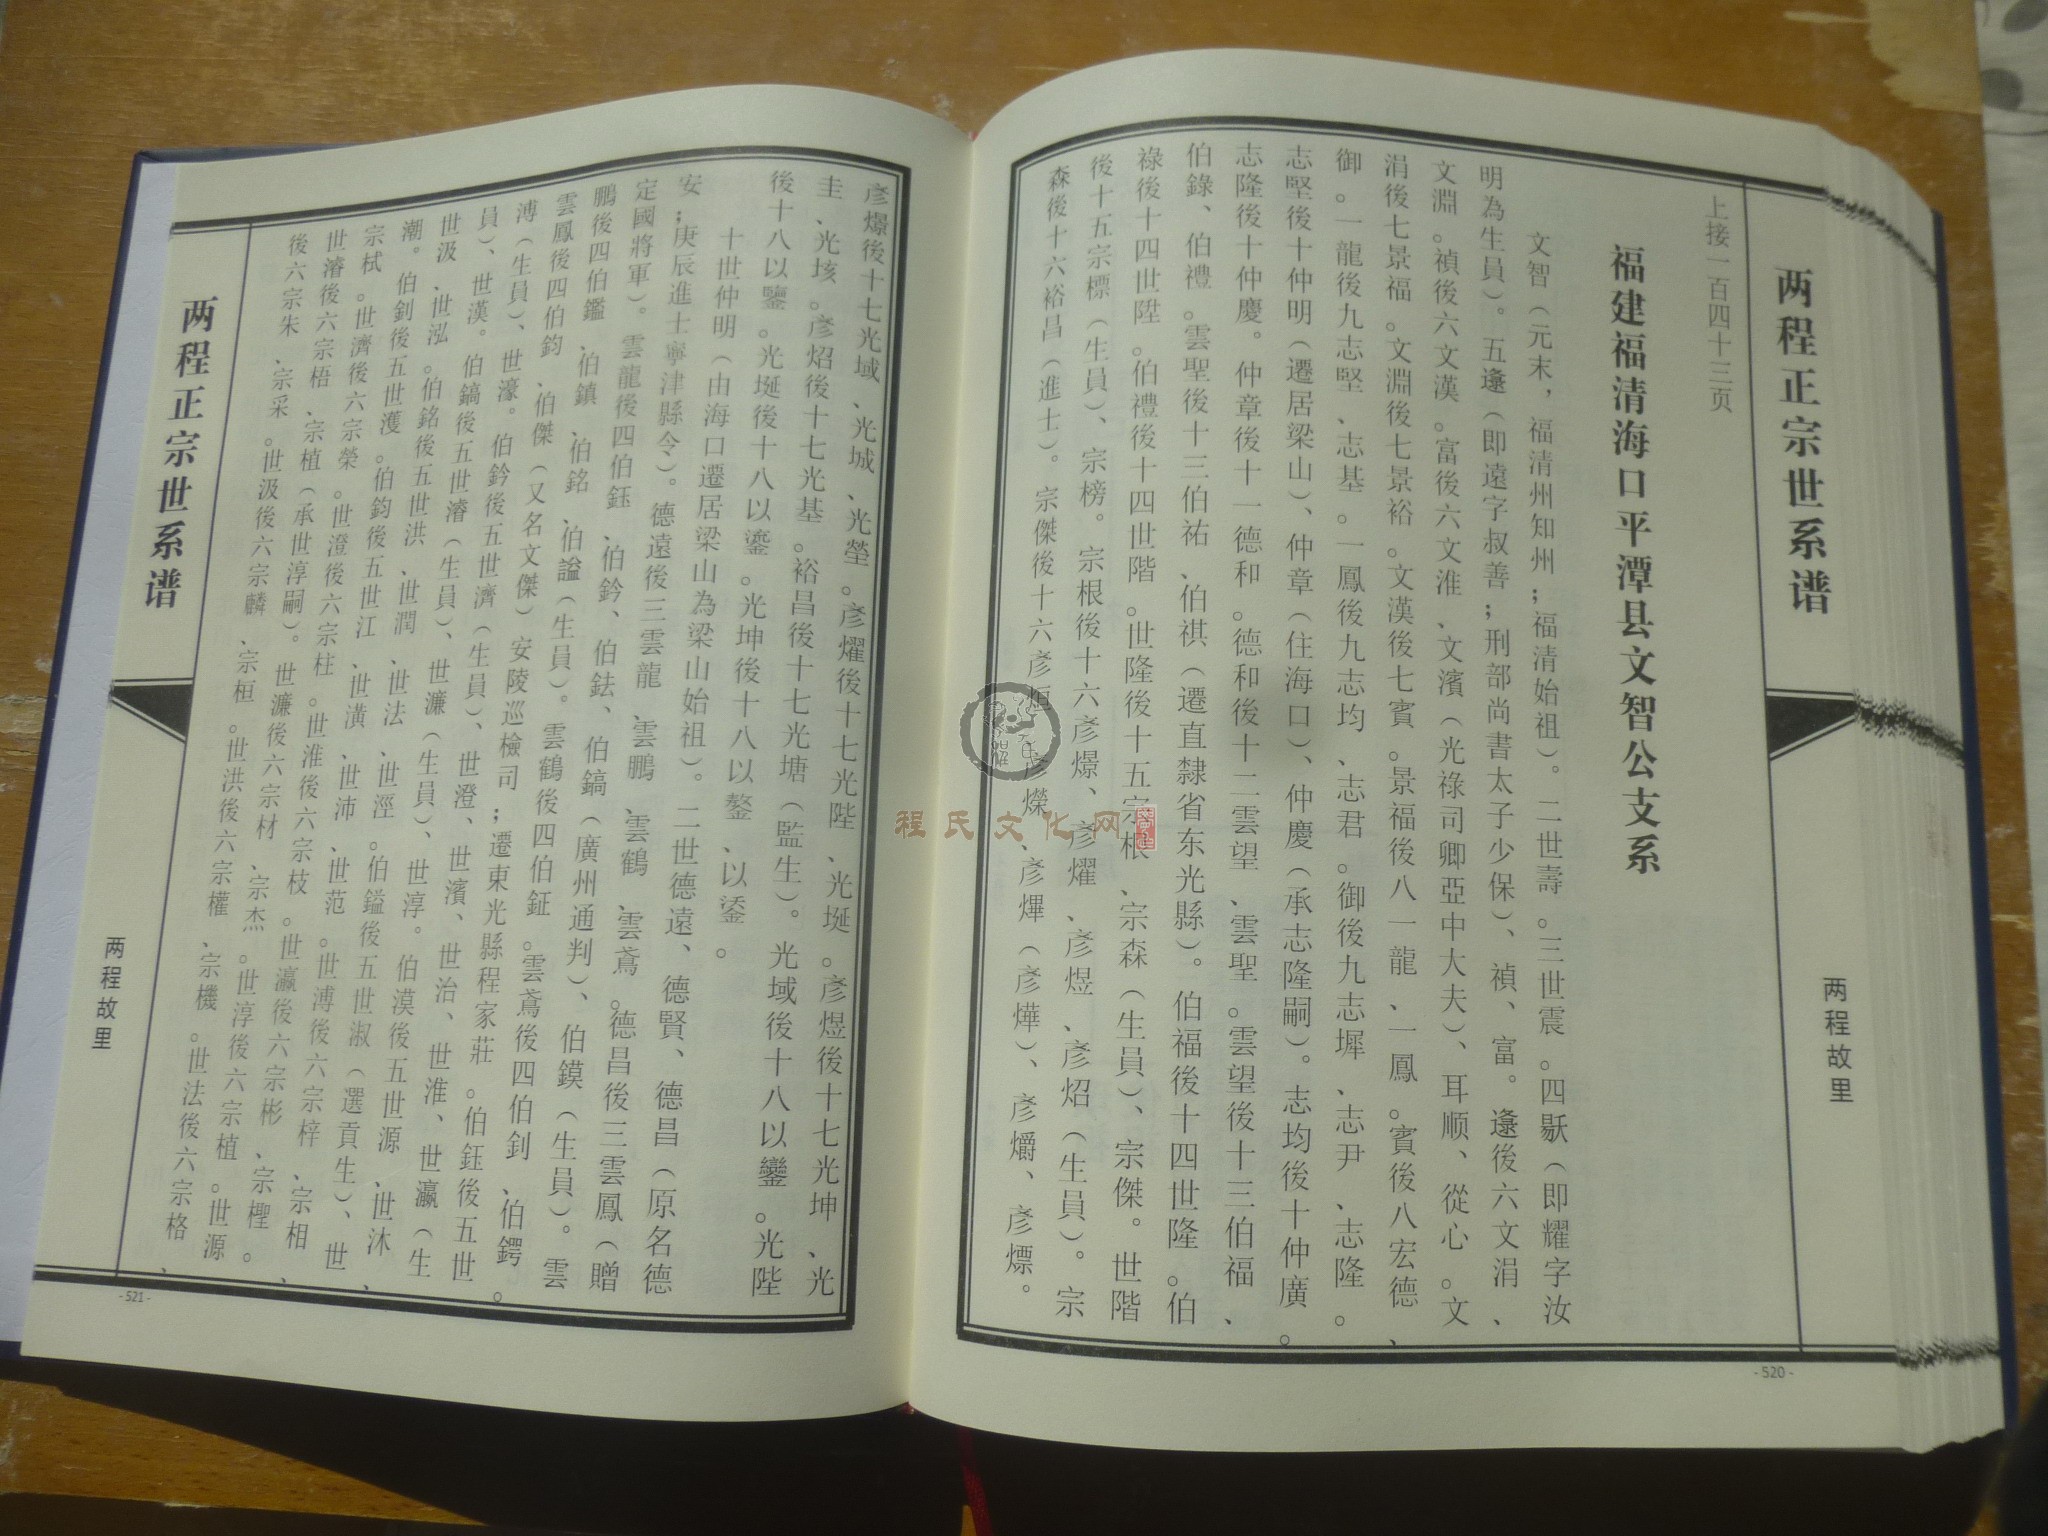 两程正宗世系谱
两程故里
上接一百四十三页
福建福清海口平潭县文智公支系
文智（元末，福清州知州；福清始祖）。二世壽。三世震。四䫻（即耀字汝
明為生員）。五逢（即遠字叔善；刑部尚書太子少保）、禎、富。逢後六文涓、
文淵。禎後六文漢。富後六文淮、文濱（光祿司卿亞中大夫）、耳順、從心。文
涓後七景福。文淵後七景裕。文漢後七賓。景福後八一龍、一鳳。賓後八宏德、
御。一龍後九志堅、志基。一鳳後九志均、志君。御後九志墀、志尹、志隆。
志堅後十仲明（遷居梁山）、仲章（住海口）、仲慶（承志隆嗣）。志均後十仲廣。
志隆後十仲慶。仲章後十一德和。德和後十二雲望、雲聖。雲望後十三伯福、
伯錄、伯禮。雲聖後十三伯祐、伯祺（遷直隸省东光縣）。伯福後十四世隆。伯
祿後十四世陞。伯禮後十四世階。世隆後十五宗根、宗森（生員）、宗傑。世階
後十五宗標（生員）、宗榜。宗根後十六彥㬌、彥燿、彥煜、彥炤（生員）。宗
森後十六裕昌（進士）。宗傑後十六彥烜、彥爍、彥熚（彥燁）、彥爝、彥熛。
- 520 -
彥㬌後十七光域、光城、光塋。彥燿後十七光陛、光埏。彥煜後十七光坤、光
圭、光垓。彥炤後十七光基。裕昌後十七光塘（監生）。光域後十八以鑾。光陛
後十八以鑒。光埏後十八以鎏。光坤後十八以鏊、以鋈。
十世仲明（由海口遷居梁山為梁山始祖）。二世德遠、德賢、德昌（原名德
安；庚辰進士寧津縣令）。德遠後三雲龍、雲鵬、雲鶴、雲鳶。德昌後三雲鳳（贈
定國將軍）。雲龍後四伯鈺、伯鈐、伯鉣、伯鎬（廣州通判）、伯鏌（生員）。雲
鵬後四伯鑑、伯鎮、伯銘、伯謚（生員）。雲鶴後四伯鉦。雲鳶後四伯釗、伯鍔。
雲鳳後四伯鈞、伯傑（又名文傑）安陵巡檢司；遷東光縣程家莊。伯鈺後五世
溥（生員）、世濠。伯鈐後五世濟（生員）、世澄、世濱、世治、世淮、世瀛（生
員）、世漢。伯鎬後五世濬（生員）、世濂（生員）、世淳。伯漠後五世源、世沐、
世汲、世泓。伯銘後五世洪、世潤、世法、世涇。伯鎰後五世淑（選貢生）、世
潮。伯釗後五世濩。伯鈞後五世江、世潢、世沛、世范。世溥後六宗梓、宗相、
宗栻。世濟後六宗榮。世澄後六宗柱。世淮後六宗枝。世瀛後六宗彬、宗檉。
世濬後六宗梧、宗植（承世淳嗣）。世濂後六宗材、宗杰。世淳後六宗植。世源
後六宗朱、宗采。世汲後六宗麟、宗桓。世洪後六宗權、宗機。世法後六宗格、
两程正宗世系谱
两程故里
- 521 -
程氏文化网